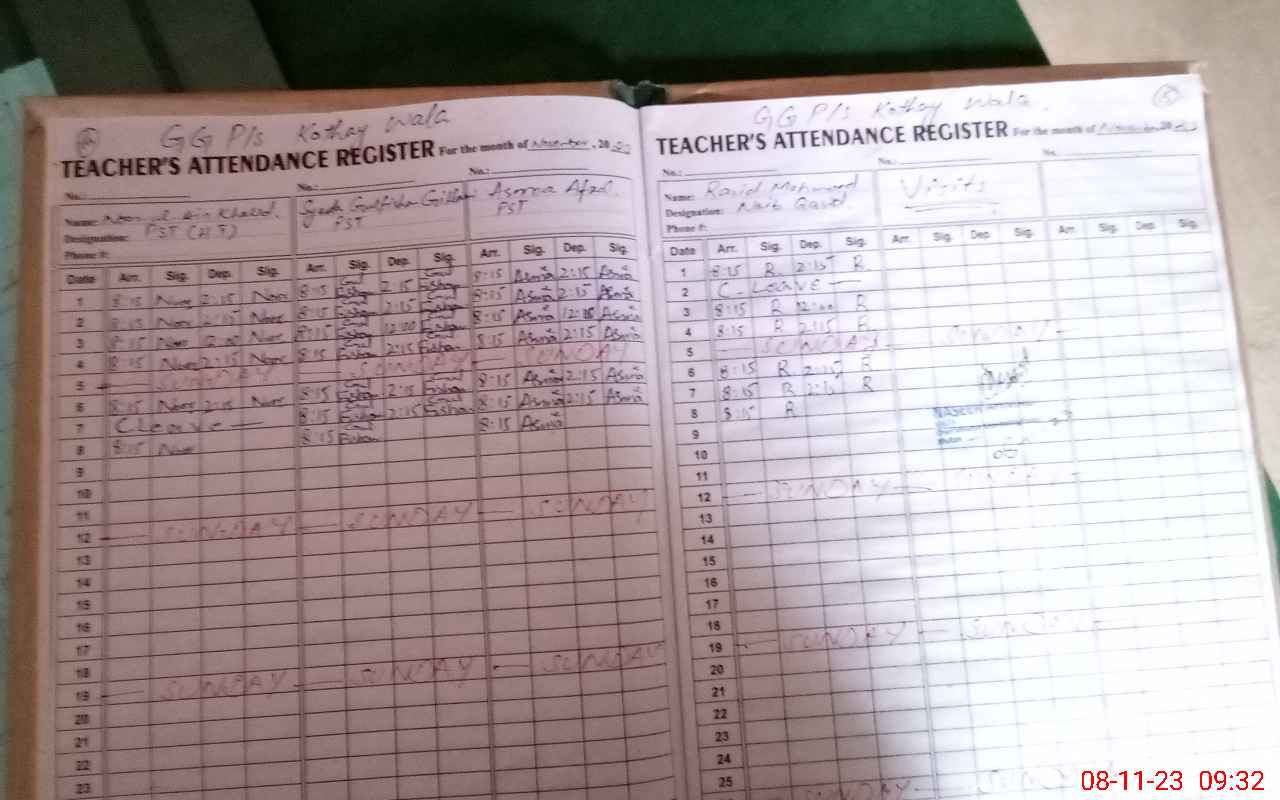 GG P/s Kothay Wala
TEACHER'S ATTENDANCE REGISTER For the month of November, 20
No.: No.: No.:
Name: Noor ul Ain Khalid. Syeda Gulfisha Gillani Asma Afzal.
Designation: PST (H.T) PST PST
Phone #:
Date Arr. Sig. Dep. Sig. Arr. Sig. Dep. Sig. Arr. Sig. Dep. Sig.
1 8:15 Noor 2:15 Noor 8:15 2:15 8:15 Asma 2:15 Asma
2 8:15 Noor 2:15 Noor 8:15 2:15 8:15 Asma 2:15 Asma
3 8:15 Noor 12:00 Noor 8:15 12:00 8:15 Asma 12:00 Asma
4 8:15 Noor 2:15 Noor 8:15 2:15 8:15 Asma 2:15 Asma
5 SUNDAY SUNDAY SUNDAY
6 8:15 Noor 2:15 Noor 8:15 2:15 8:15 Asma 2:15 Asma
7 C.Leave 8:15 2:15 8:15 Asma 2:15 Asma
8 8:15 Noor 8:15 8:15 Asma
9
10
11
12 SUNDAY SUNDAY SUNDAY
13
14
15
16
17
18
19 SUNDAY SUNDAY SUNDAY
20
21
22
23
GG P/s Kothay Wala.
TEACHER'S ATTENDANCE REGISTER For the month of November, 20
No.: No.: No.:
Name: Mehmood Visits
Designation: Naib Qasid
Phone #:
Date Arr. Sig. Dep. Sig. Arr. Sig. Dep. Sig. Arr. Sig. Dep. Sig.
1 8:15 R 2:15 R
2 C. Leave
3 8:15 R 12:00 R
4 8:15 R 2:15 R
5 SUNDAY SUNDAY
6 8:15 R 2:15 R
7 8:15 R 2:15 R
8 8:15 R
9
10
11
12 SUNDAY SUNDAY
13
14
15
16
17
18
19 SUNDAY SUNDAY
20
21
22
23
24
25
08-11-23 09:32